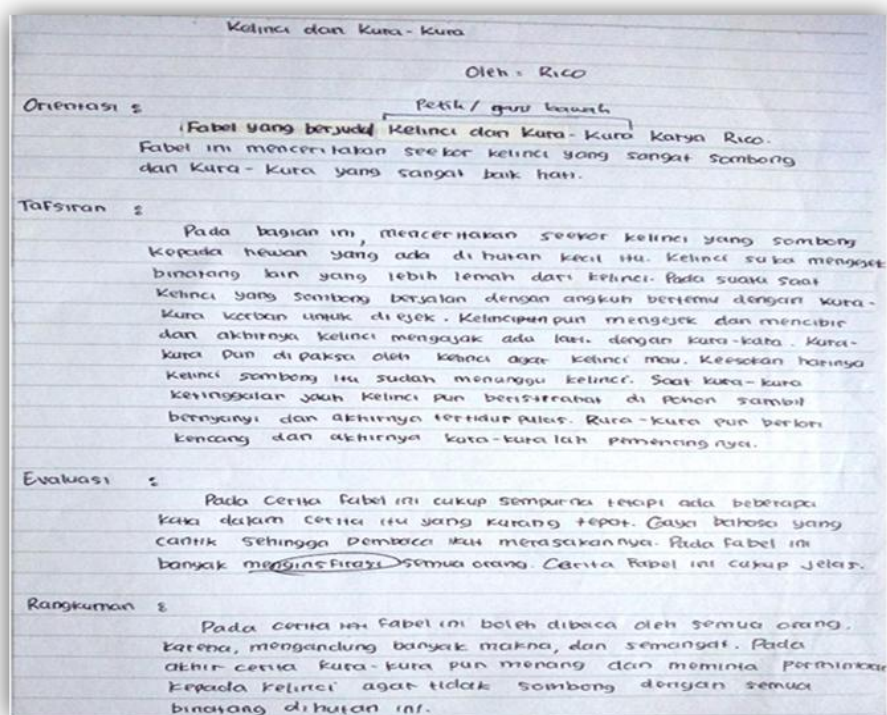 Kelinci dan Kura-Kura
Oleh : Rico
Orientasi :
Petik / garis bawah
Fabel yang berjudul Kelinci dan Kura-Kura Karya Rico.
Fabel ini menceritakan seekor kelinci yang sangat sombong
dan Kura-Kura yang sangat baik hati.
Tafsiran :
Pada bagian ini, menceritakan seekor kelinci yang sombong
kepada hewan yang ada di hutan kecil itu. Kelinci suka mengejek
binatang lain yang lebih lemah dari kelinci. Pada suatu saat
Kelinci yang sombong berjalan dengan angkuh bertemu dengan kura-
kura korban untuk di ejek. Kelincipun pun mengejek dan mencibir
dan akhirnya kelinci mengajak adu lari dengan kura-kura. Kura-
kura pun di paksa oleh kelinci agar kelinci mau. Keesokan harinya
kelinci sombong itu sudah menunggu kelinci. Saat kura-kura
ketinggalan jauh kelinci pun beristirahat di pohon sambil
bernyanyi dan akhirnya tertidur pulas. Kura-kura pun berlari
kencang dan akhirnya kura-kura lah pemenang nya.
Evaluasi :
Pada cerita fabel ini cukup sempurna tetapi ada beberapa
kata dalam cerita itu yang kurang tepat. Gaya bahasa yang
cantik sehingga pembaca ikut merasakannya. Pada fabel ini
banyak menginsfirasi semua orang. Cerita Fabel ini cukup jelas.
Rangkuman :
Pada cerita fabel ini boleh dibaca oleh semua orang.
karena, mengandung banyak makna, dan semangat. Pada
akhir cerita kura-kura pun menang dan meminta
kepada kelinci agar tidak sombong dengan semua
binatang dihutan ini.